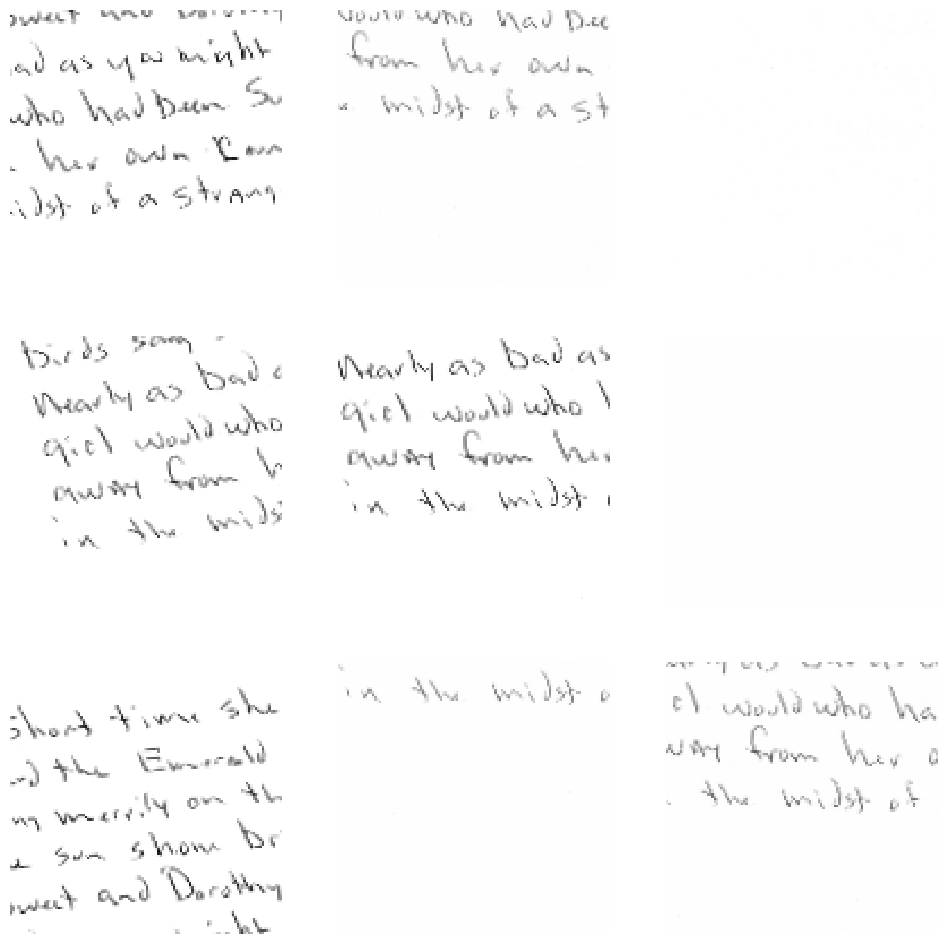 as you might
who had been
her own
of a strang
would who had
from her own
midst of a st
birds sang
nearly as bad
girl would who
away from
in the mids
nearly as bad as
girl would who
away from her
in the midst
short time she
the Emerald
merrily on th
sun shone br
sweet and Dorothy
in the midst
would who ha
from her
the midst of